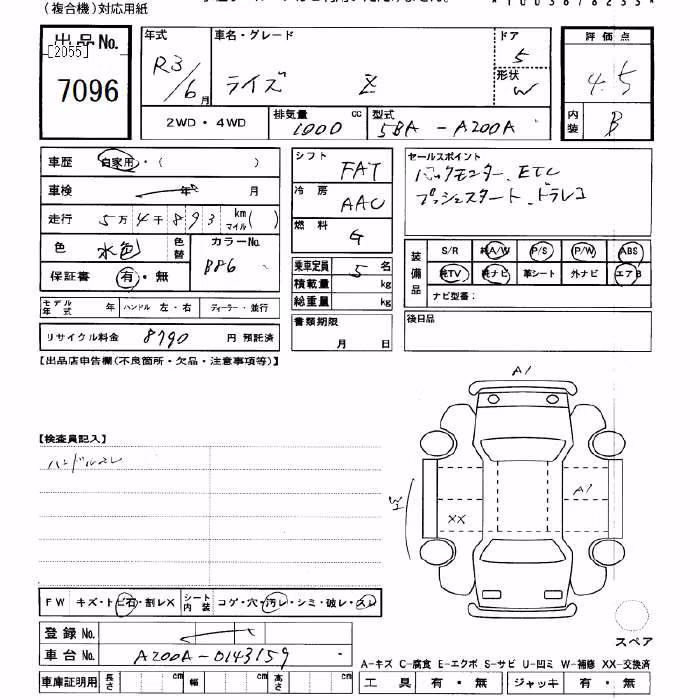 (複合機)対応用紙
出品No.
[2055]
7096
年式 R3/6月
車名・グレード
ライズ Z
ドア 5
形状 W
評価点
4.5
内装 B
2WD・4WD
排気量 1000 cc
型式 5BA-A200A
車歴 自家用・( )
車検 年 月
走行 5万4千893 km マイル( )
色 水色 色替
カラーNo. B86
保証書 有・無
モデル年式 年 ハンドル 左・右 ディーラー・並行
リサイクル料金 8790 円 預託済
シフト FAT
冷房 AAC
燃料 G
乗車定員 5 名
積載量 kg
総重量 kg
書類期限
月 日
セールスポイント
バックモニター、ETC
プッシュスタート、ドラレコ
装備品
S/R 純A/W P/S P/W ABS
純TV 純ナビ 革シート 外ナビ エアB
ナビ型番:
後日品
【出品店申告欄(不良箇所・欠品・注意事項等)】
【検査員記入】
ハンドルスレ
A1
A1
XX
W
FW キズ・トビ石・割レX シート内装 コゲ・穴・汚レ・シミ・破レ・スレ
登録No.
車台No. A200A-0143159
車庫証明用 長さ cm 幅 cm 高さ cm
スペア
A-キズ C-腐食 E-エクボ S-サビ U-凹ミ W-補修 XX-交換済
工具 有・無 ジャッキ 有・無